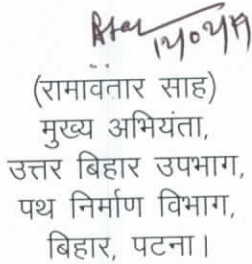 (रामावतार साह)
मुख्य अभियंता,
उत्तर बिहार उपभाग,
पथ निर्माण विभाग,
बिहार, पटना।